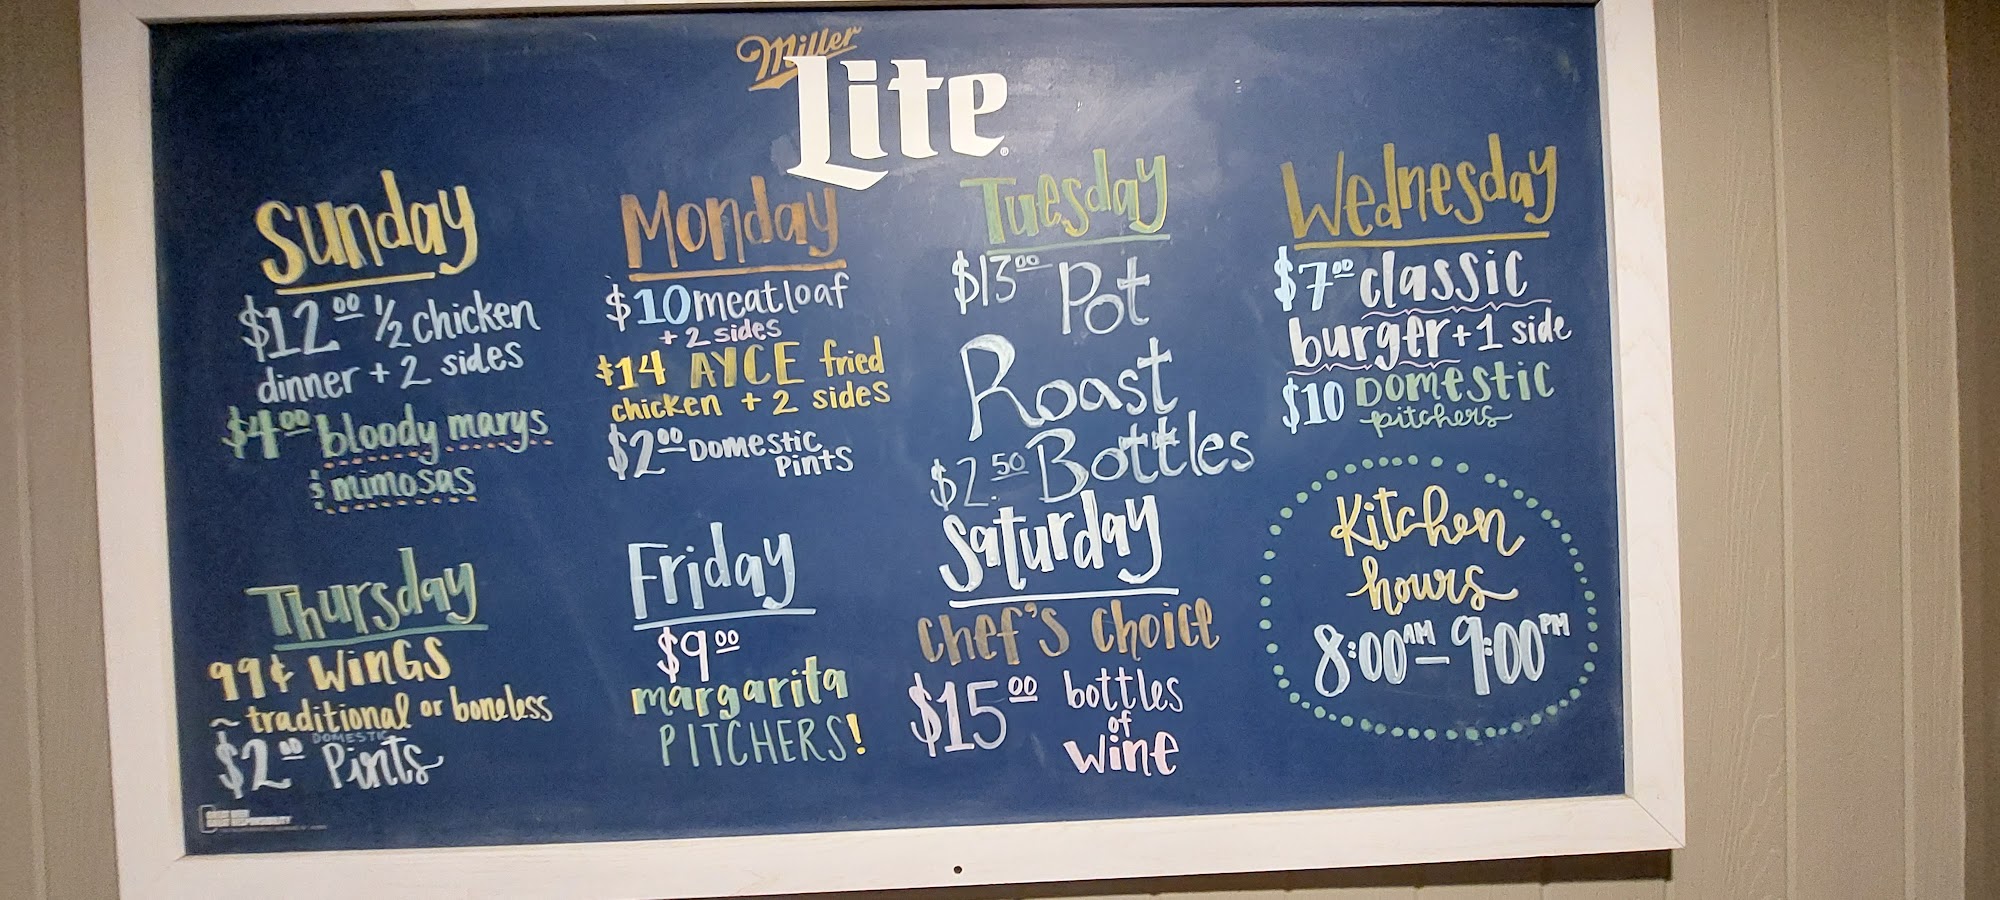 Miller
Lite
Sunday
$12.00 1/2 chicken
dinner + 2 sides
$4.00 bloody marys
& mimosas
Monday
$10 meatloaf
+ 2 sides
$14 AYCE fried
chicken + 2 sides
$2.00 Domestic
Pints
Tuesday
$13.00 Pot
Roast
$2.50 Bottles
Wednesday
$7.00 classic
burger + 1 side
$10 Domestic
pitchers
Thursday
99¢ WINGS
~ traditional or boneless
DOMESTIC
$2.00 Pints
Friday
$9.00
margarita
PITCHERS!
Saturday
chef's choice
$15.00 bottles
of
wine
Kitchen
hours
8:00AM – 9:00PM